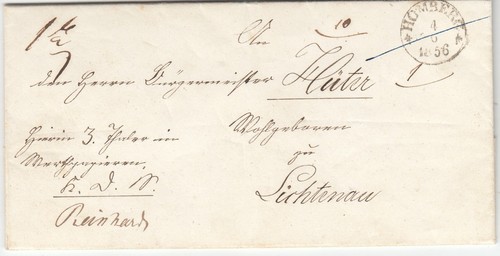 1 1/2
An
10
HOMBERG
4
6
1856
den Herrn Bürgermeister Hüter
Wohlgeboren
zu
Lichtenau
Hierin 3. Thaler in
Werthpapieren.
K. D. S.
Reinhard